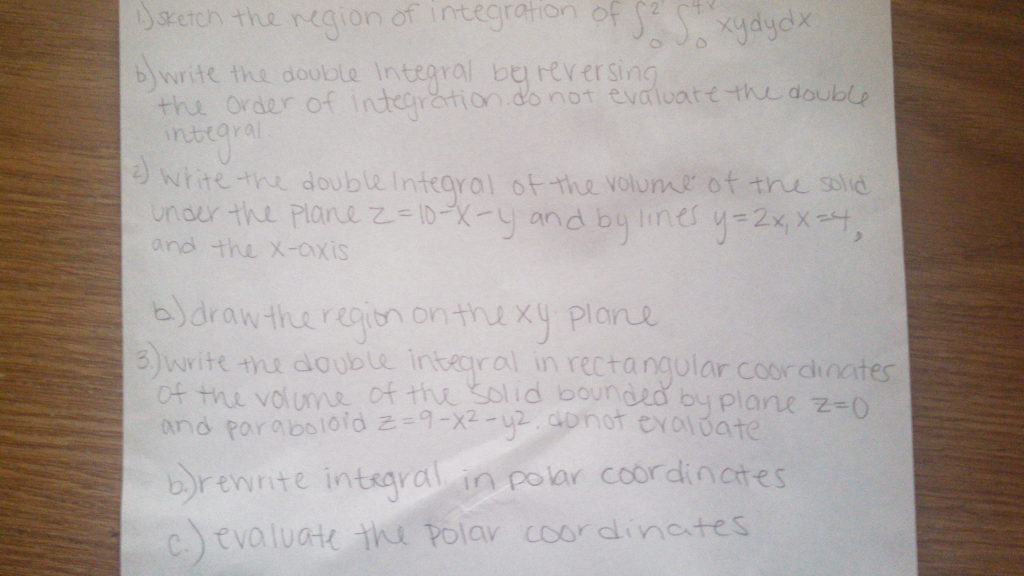 1.) sketch the region of integration of ∫₀² ∫₀⁴ˣ xydydx
b) write the double integral by reversing
the order of integration. do not evaluate the double
integral.
2) Write the double Integral of the volume of the solid
under the plane z=10-x-y and by lines y=2x, x=4,
and the x-axis
b.) draw the region on the xy plane
3.) write the double integral in rectangular coordinates
of the volume of the solid bounded by plane z=0
and paraboloid z=9-x2-y2. do not evaluate
b.) rewrite integral in polar coordinates
c.) evaluate the polar coordinates